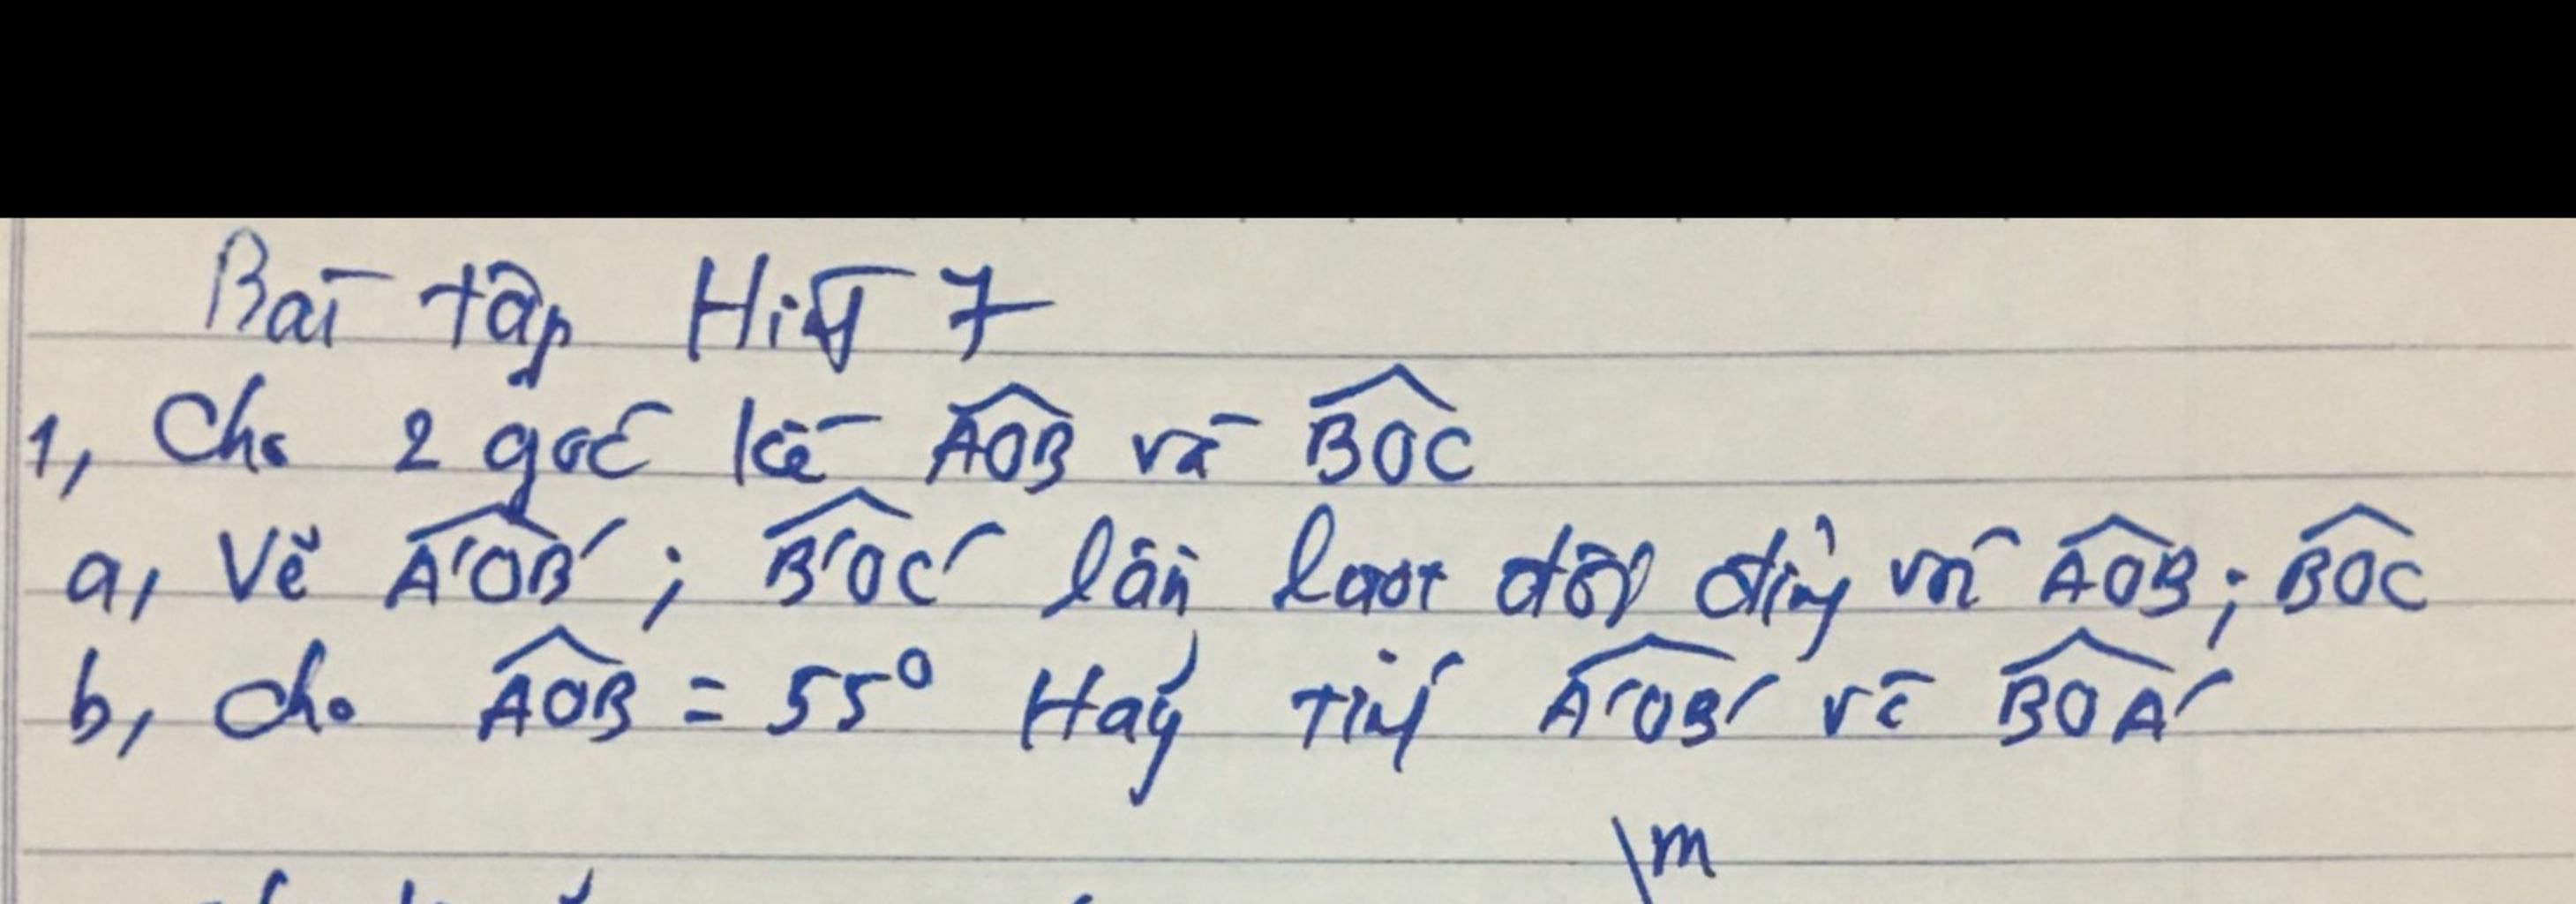 Bài tập Hình 7
1, Cho 2 góc kề A͡OB và B͡OC
a, Vẽ A͡'OB' ; B͡'OC' lần lượt đối đỉnh với A͡OB ; B͡OC
b, Cho A͡OB = 55⁰ Hãy tính A͡'OB' và B͡OA'
m